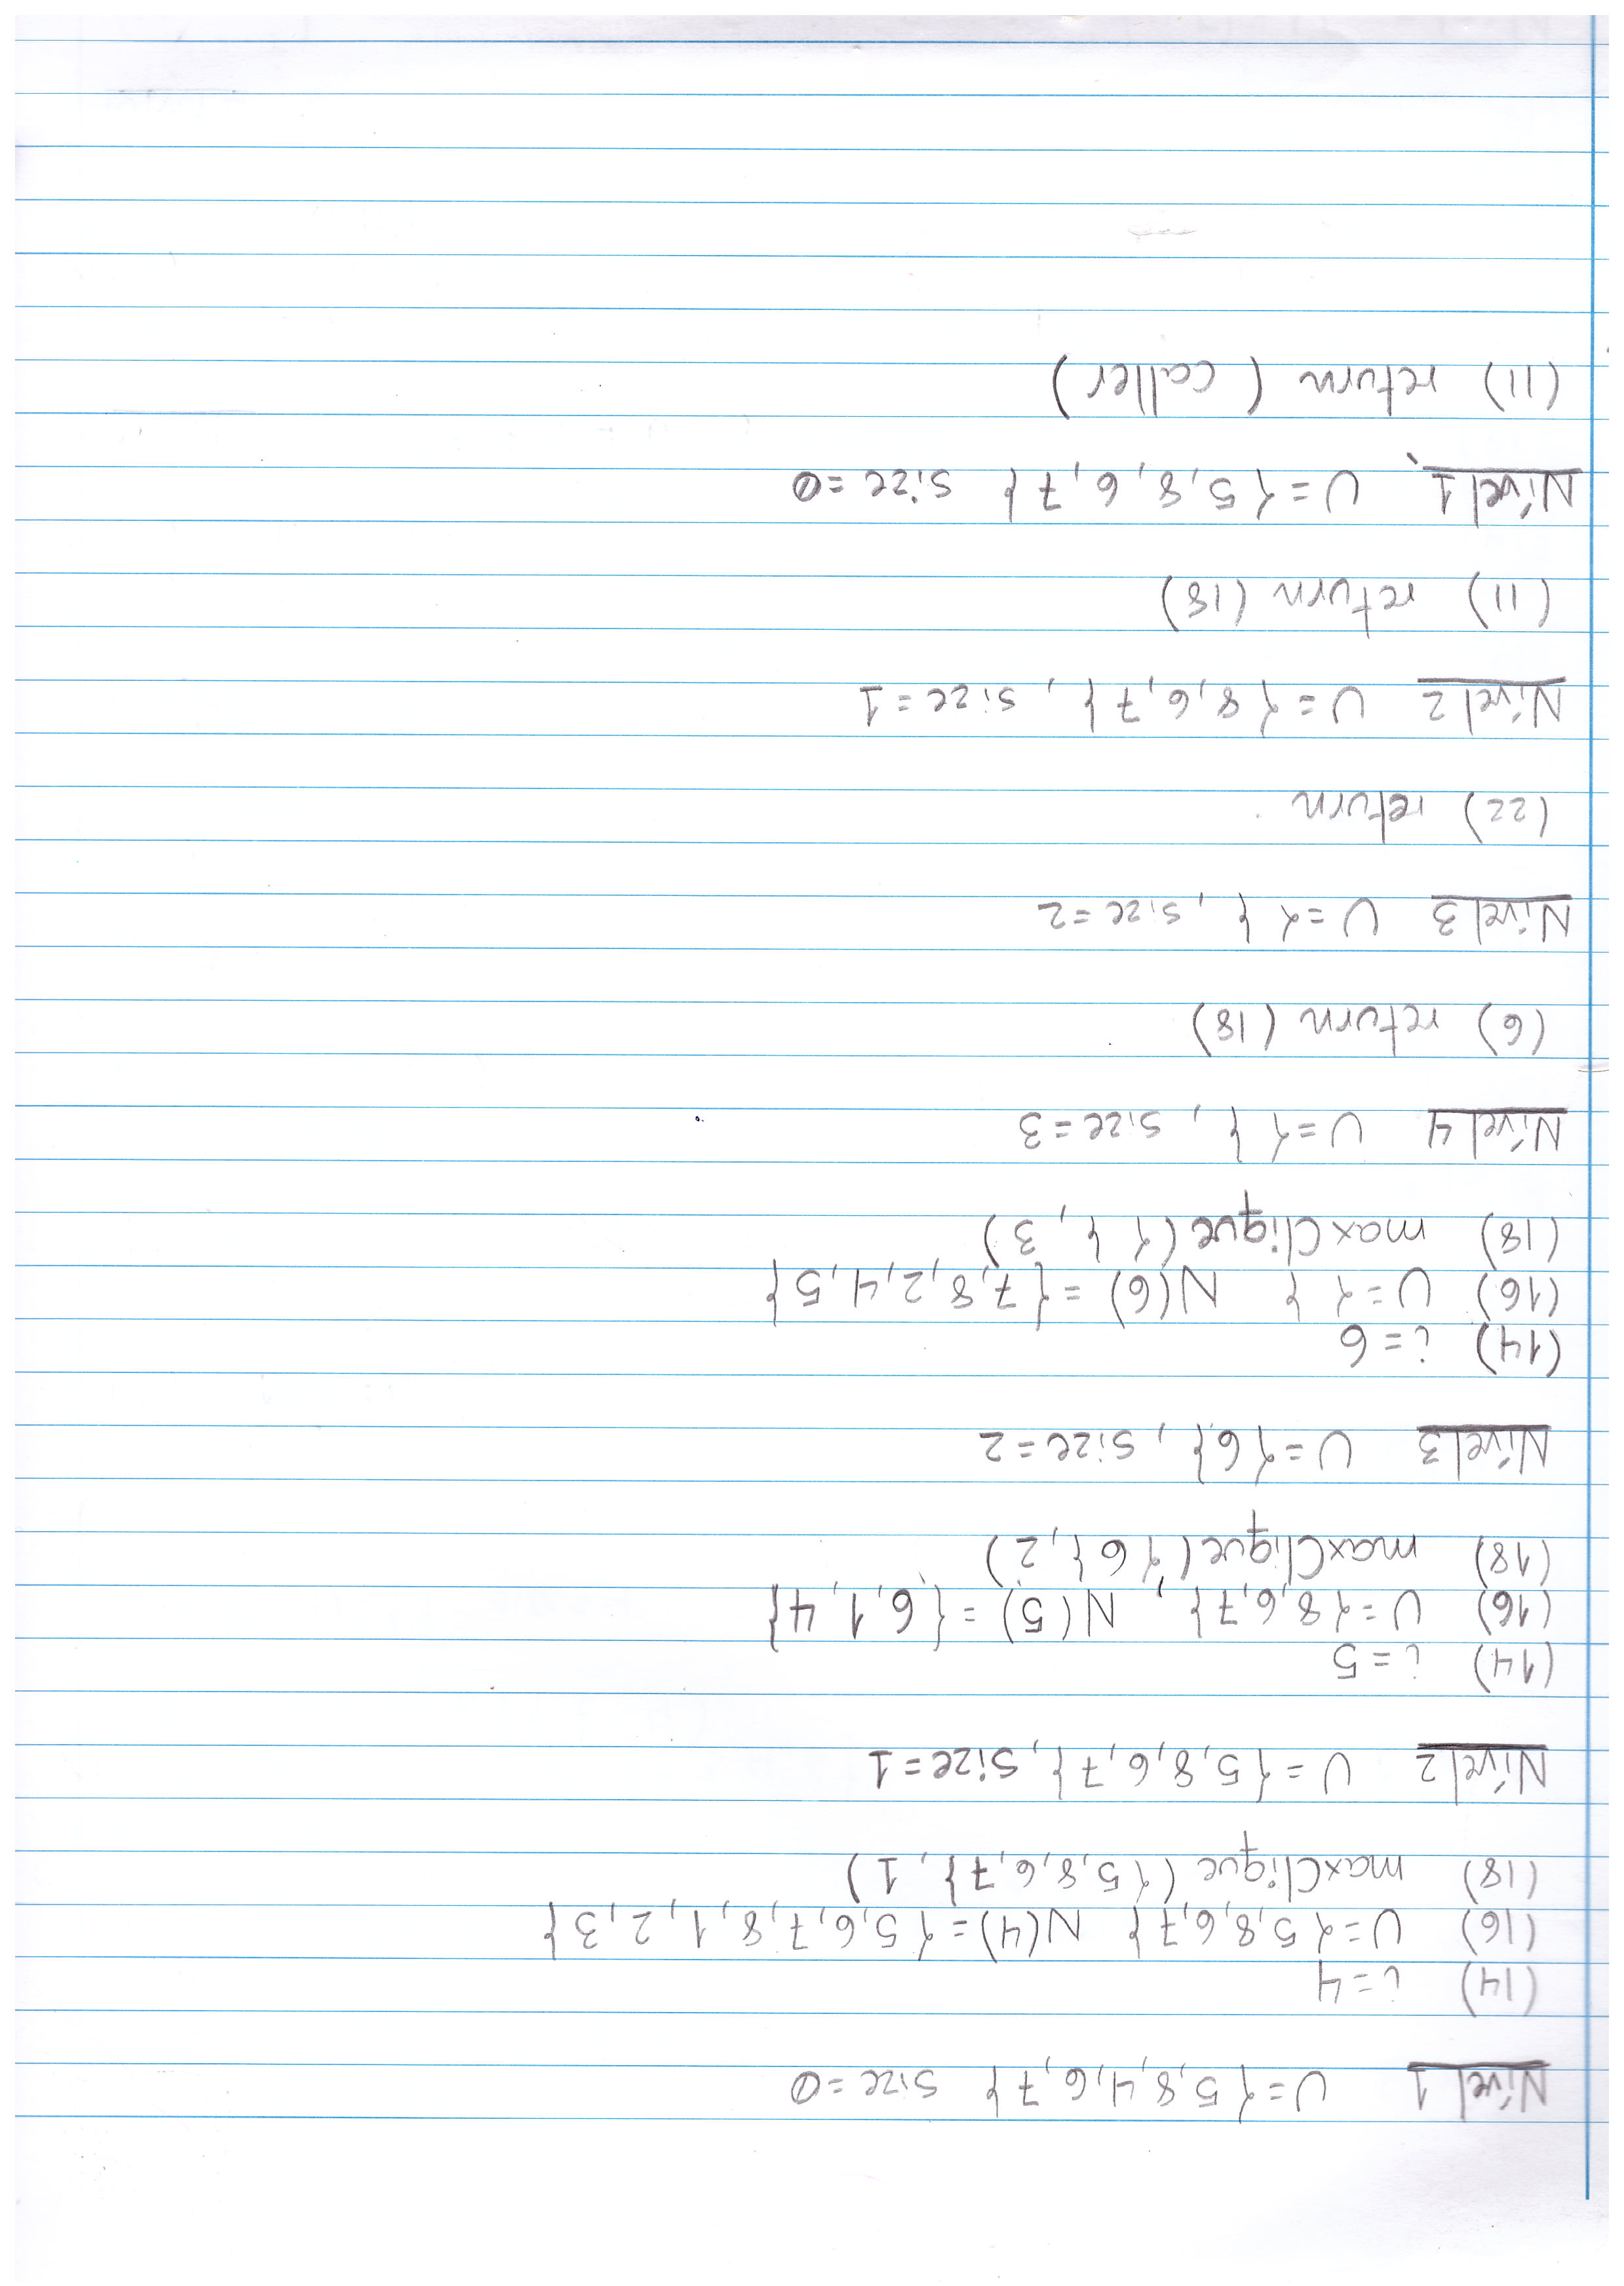 Nível 1 U={5,8,4,6,7} size=0
(14) i=4
(16) U={5,8,6,7} N(4)={5,6,7,8,1,2,3}
(18) maxClique({5,8,6,7},1)
Nível 2 U={5,8,6,7}, size=1
(14) i=5
(16) U={8,6,7}, N(5)={6,1,4}
(18) maxClique({6},2)
Nível 3 U={6}, size=2
(14) i=6
(16) U={ } N(6)={7,8,2,4,5}
(18) maxClique({ }, 3)
Nível 4 U={ }, size=3
(6) return (18)
Nível 3 U={ }, size=2
(22) return
Nível 2 U={8,6,7}, size=1
(11) return (18)
Nível 1 U={5,8,6,7} size=0
(11) return (caller)